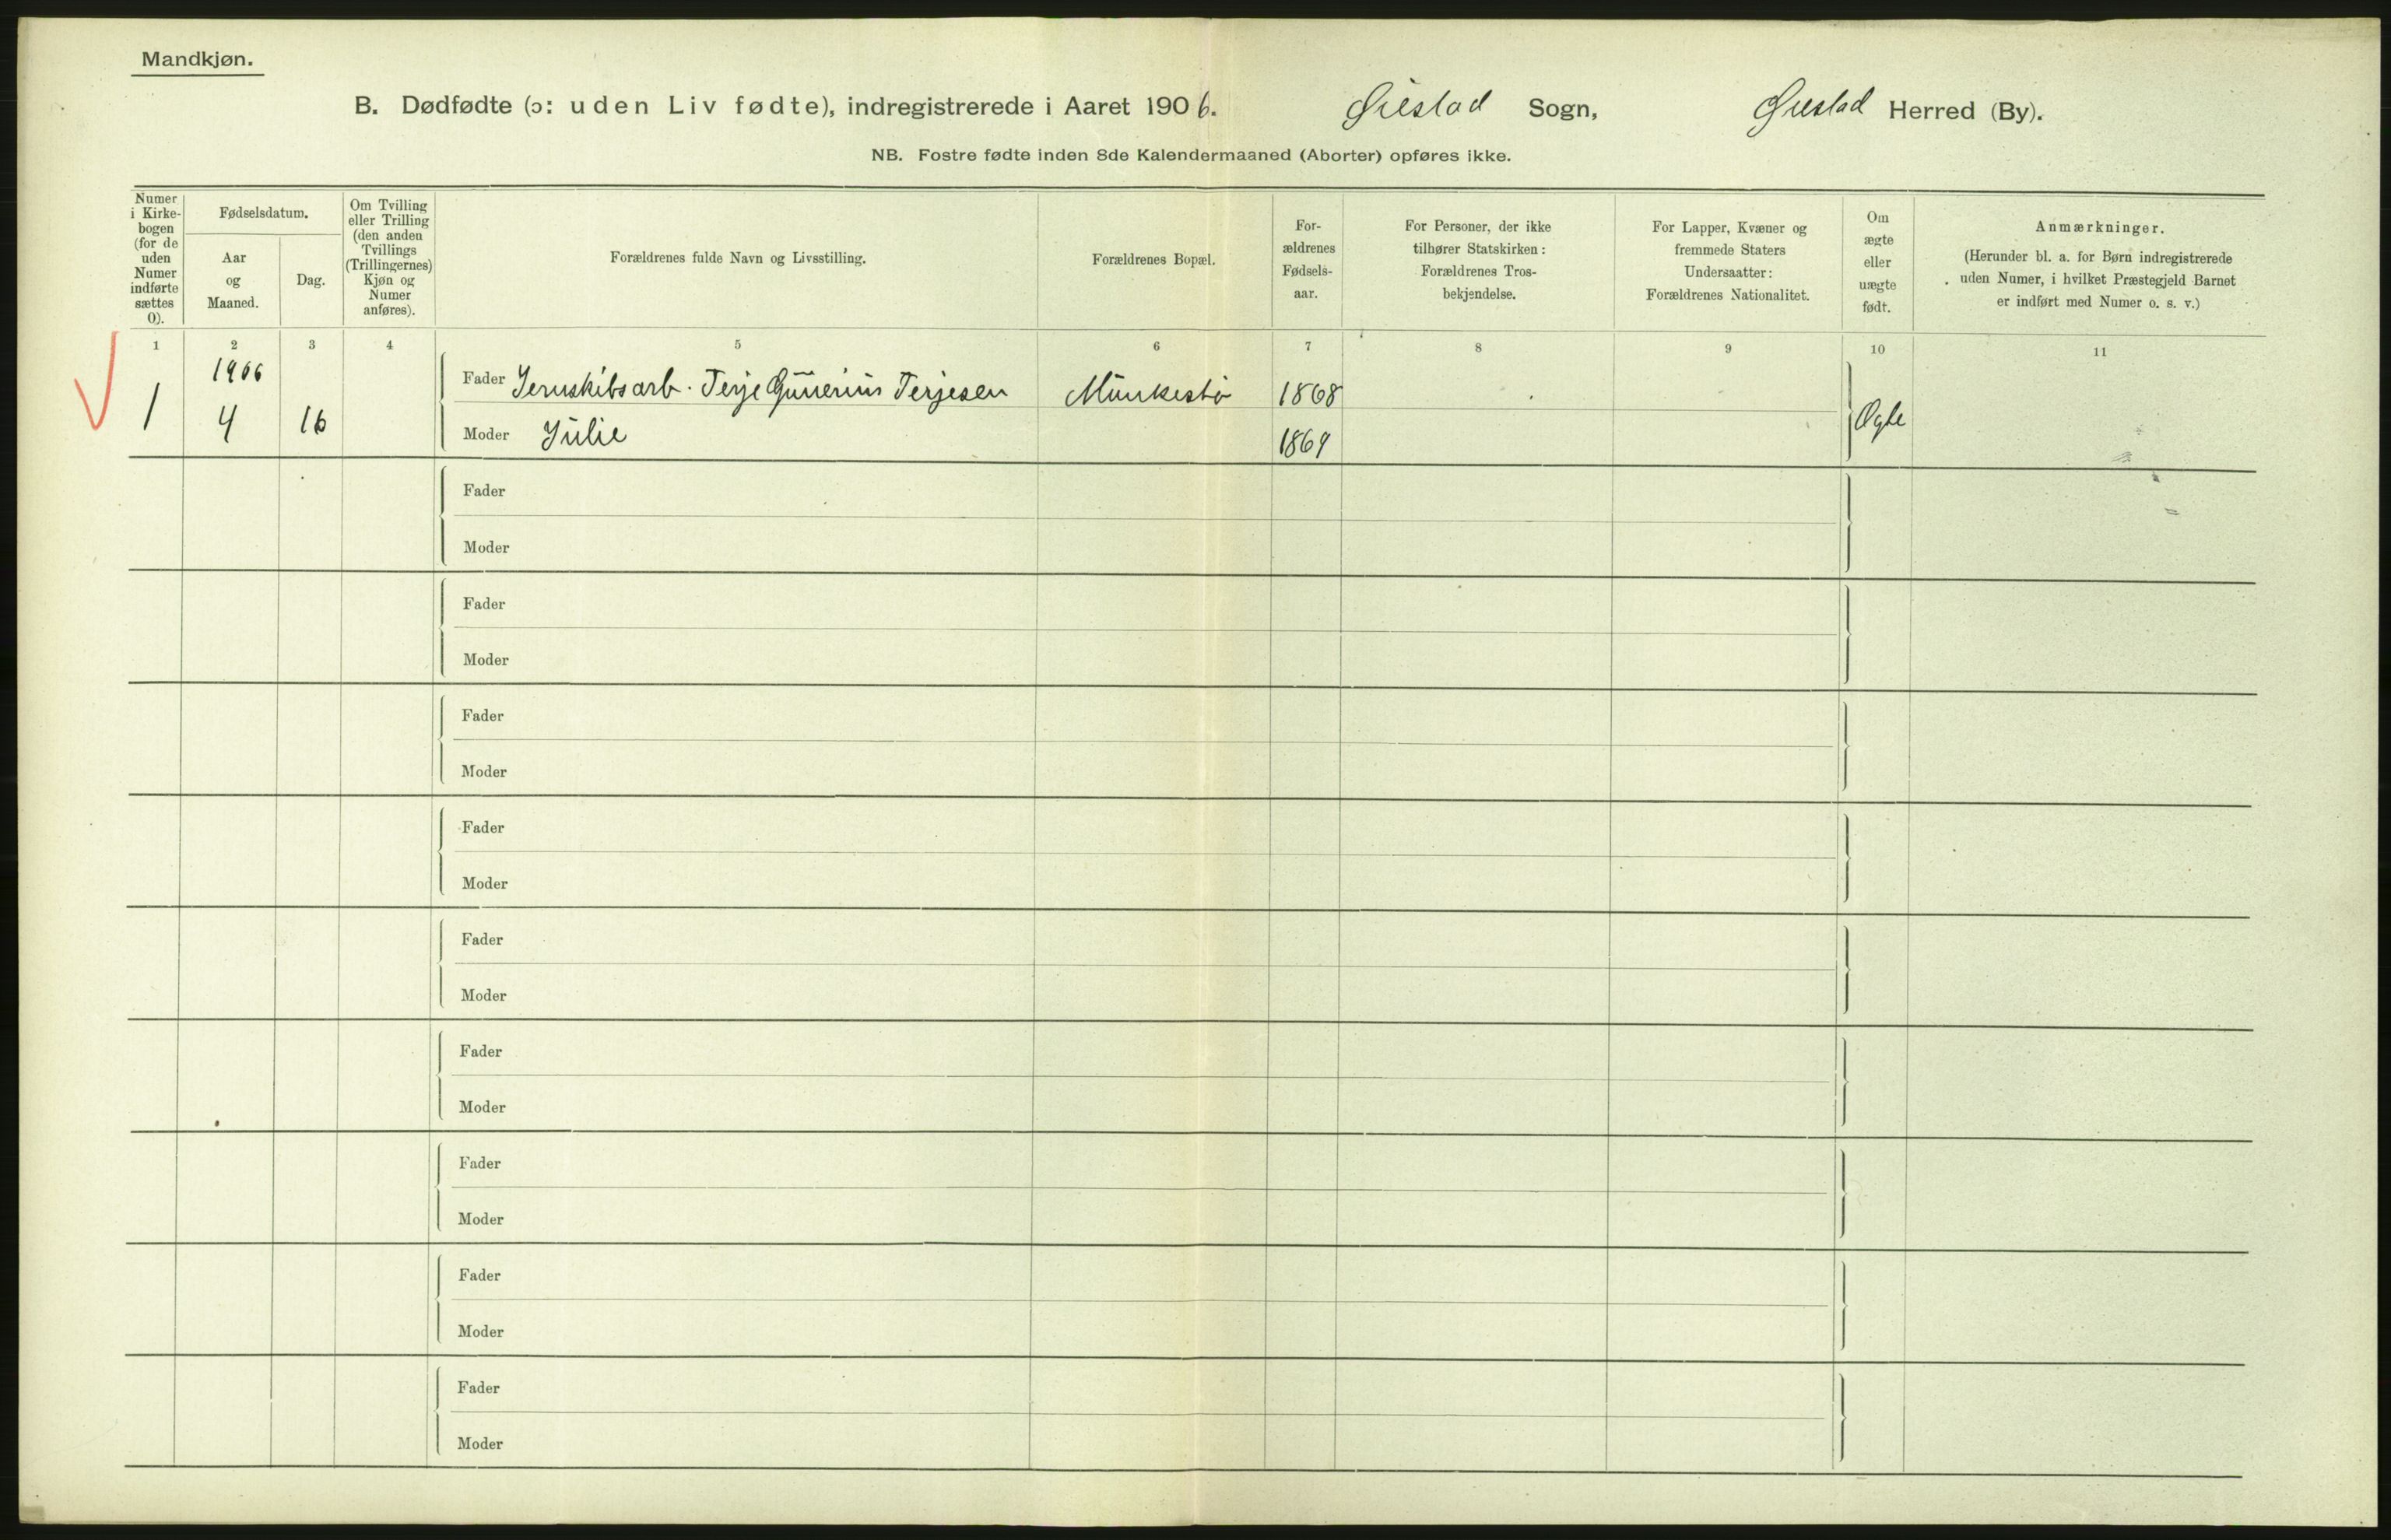 Mandkjøn.
B. Dødfødte (ɔ: uden Liv fødte), indregistrerede i Aaret 1906. Øiestad Sogn, Øiestad Herred (By).
NB. Fostre fødte inden 8de Kalendermaaned (Aborter) opføres ikke.
Numer
i Kirke-
bogen
(for de
uden
Numer
indførte
sættes
0).
Fødselsdatum.
Aar
og
Maaned.
Dag.
Om Tvilling
eller Trilling
(den anden
Tvillings
(Trillingernes)
Kjøn og
Numer
anføres).
Forældrenes fulde Navn og Livsstilling.
Forældrenes Bopæl.
For-
ældrenes
Fødsels-
aar.
For Personer, der ikke
tilhører Statskirken:
Forældrenes Tros-
bekjendelse.
For Lapper, Kvæner og
fremmede Staters
Undersaatter:
Forældrenes Nationalitet.
Om
ægte
eller
uægte
født.
Anmærkninger.
(Herunder bl. a. for Børn indregistrerede
uden Numer, i hvilket Præstegjeld Barnet
er indført med Numer o. s. v.)
1 2 3 4 5 6 7 8 9 10 11
1906
Fader Jernskibsarb. Terje Gunerius Terjesen Munkesbø 1868
1 4 16 Ægte
Moder Julie 1869
Fader
Moder
Fader
Moder
Fader
Moder
Fader
Moder
Fader
Moder
Fader
Moder
Fader
Moder
Fader
Moder
Fader
Moder